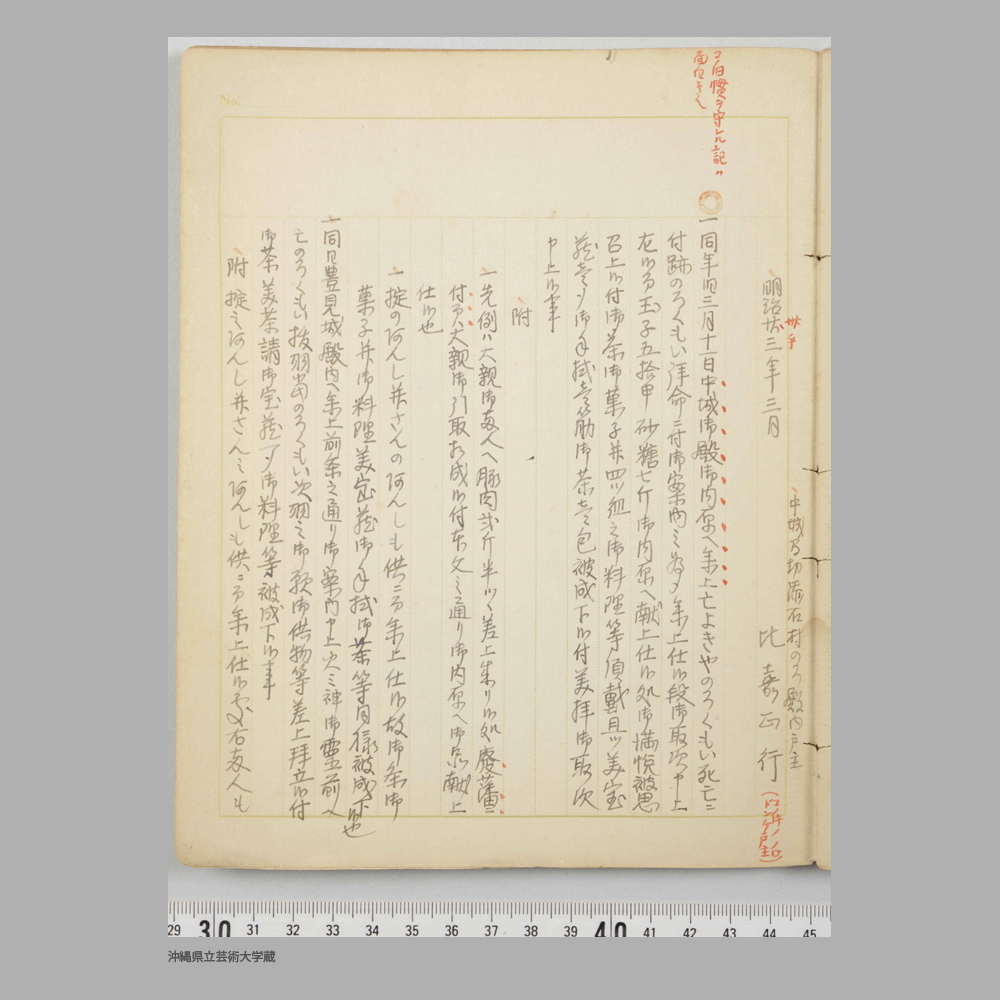 中城間切添石村のろ殿内戸主
明治廿三年三月
比嘉正行
旧慣ヲ守レル記
一同年旧三月十一日中城御殿御内原へ参上亡よきやのろくもい死亡ニ
付跡のろくもい拝命ニ付御案内之為メ参上仕候段御取次申上
左候而玉子五拾甲砂糖七斤御内原へ献上仕候処御満悦被思
召上候付御茶御菓子并四ツ組之御料理等頂戴且ツ美宝
蔵壱ツ御手拭壱筋御茶壱包被成下候付美拝御取次
申上候事
附
一先例ハ大親御両人へ豚肉弐斤半ツヽ差上来リ候処廃藩ニ
付而ハ大親御引取相成候付本文之通リ御内原へ御品献上
仕候也
一掟のあんし并さんのあんしも供ニ而参上仕候故御茶御
菓子并御料理美宝蔵御手拭御茶等同様被成下候也
一同日豊見城殿内へ参上前条之通リ御案内申上火之神御霊前へ
亡のろくもい抜羽当のろくもい次羽之御願御供物等差上拝立候付
御茶美茶請御宝蔵一ツ御料理等被成下候事
附掟之あんし并さん之あんしも供ニ而参上仕候処右両人も
沖縄県立芸術大学蔵
29 30 31 32 33 34 35 36 37 38 39 40 41 42 43 44 45